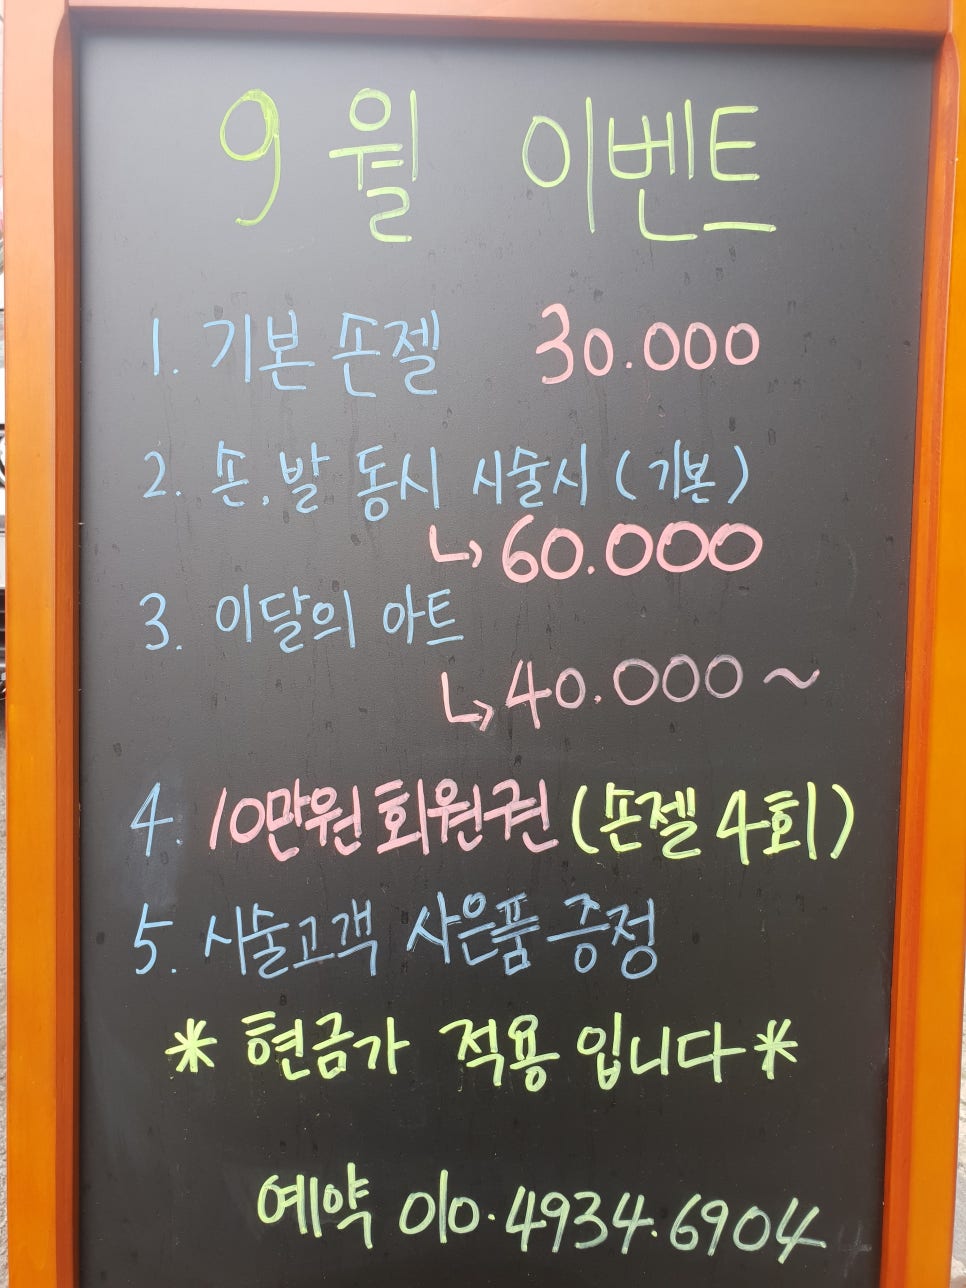 9월 이벤트
1. 기본 손젤 30.000
2. 손,발 동시 시술시 (기본)
↳ 60.000
3. 이달의 아트
↳ 40.000 ~
4. 10만원 회원권 (손젤 4회)
5. 시술고객 사은품 증정
* 현금가 적용 입니다 *
예약 010.4934.6904